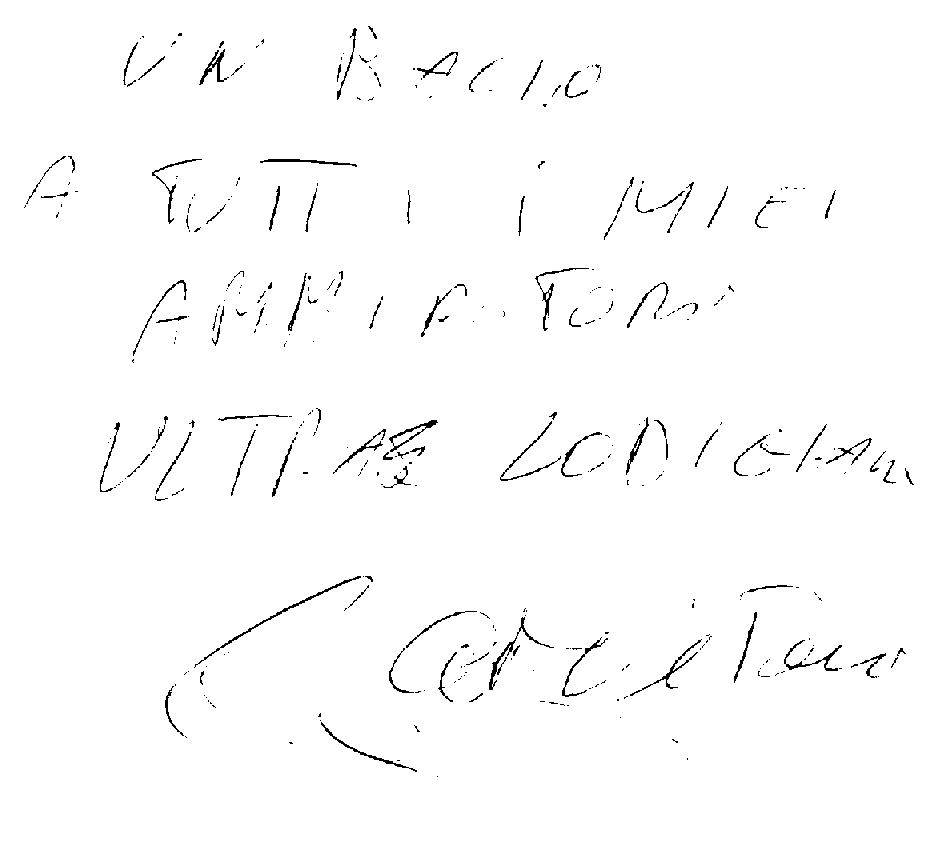 UN BACIO
A TUTTI i MIEI
AMMIRATORI
ULTRAS LODIGIANI